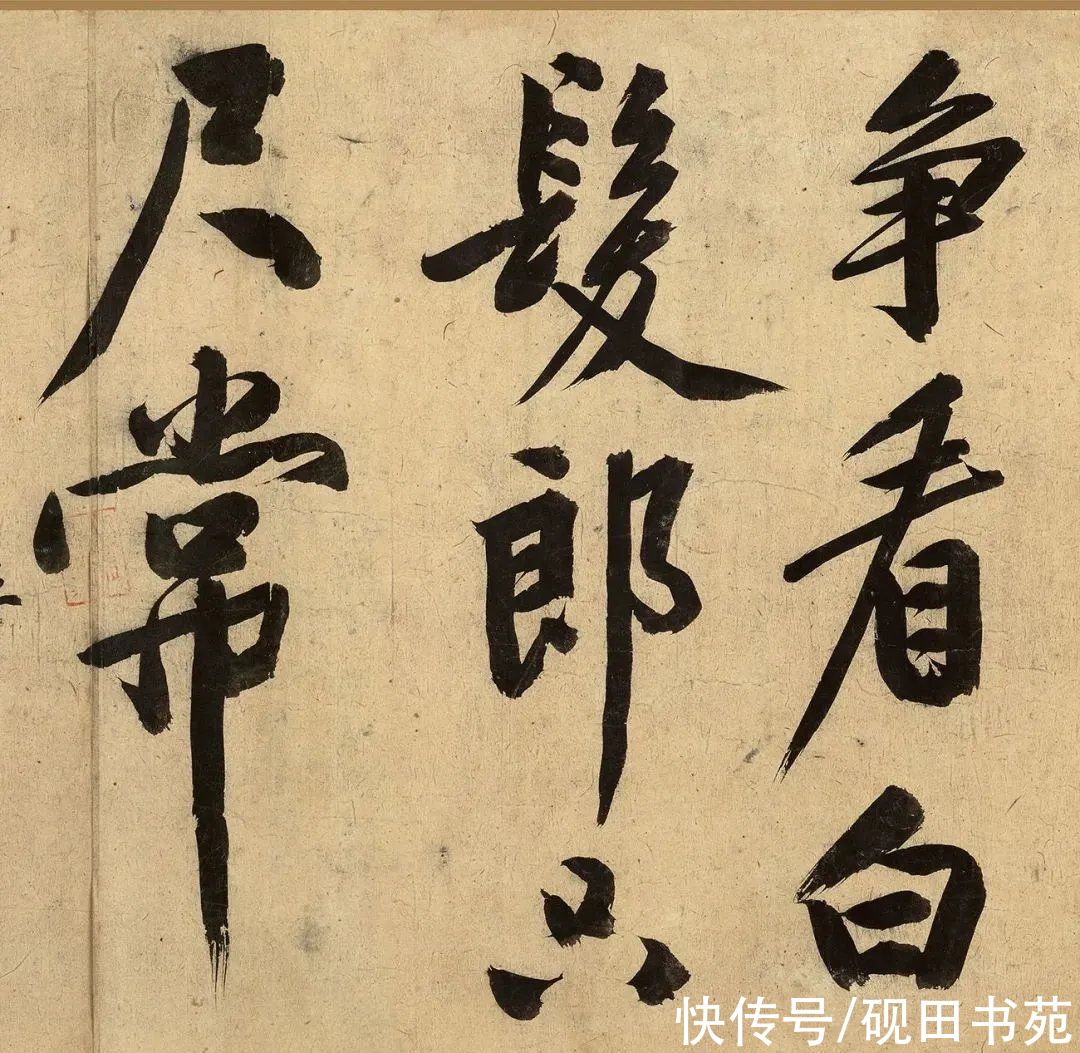 争看白
髮郎只
尺常
快传号/砚田书苑